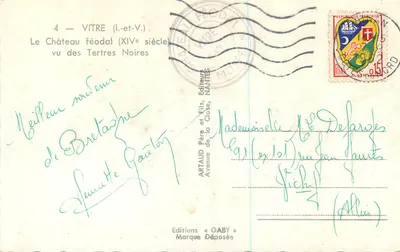 4 — VITRE (I.-et-V.)
Le Château féodal (XIVe siècle)
vu des Tertres Noires
Meilleur souvenir
de Bretagne
ARTAUD Père et Fils, Éditeurs
Avenue de la Close, NANTES
Mademoiselle Desfarges
rue Jean Jaurès
Vichy
(Allier)
Editions « GABY »
Marque Déposée